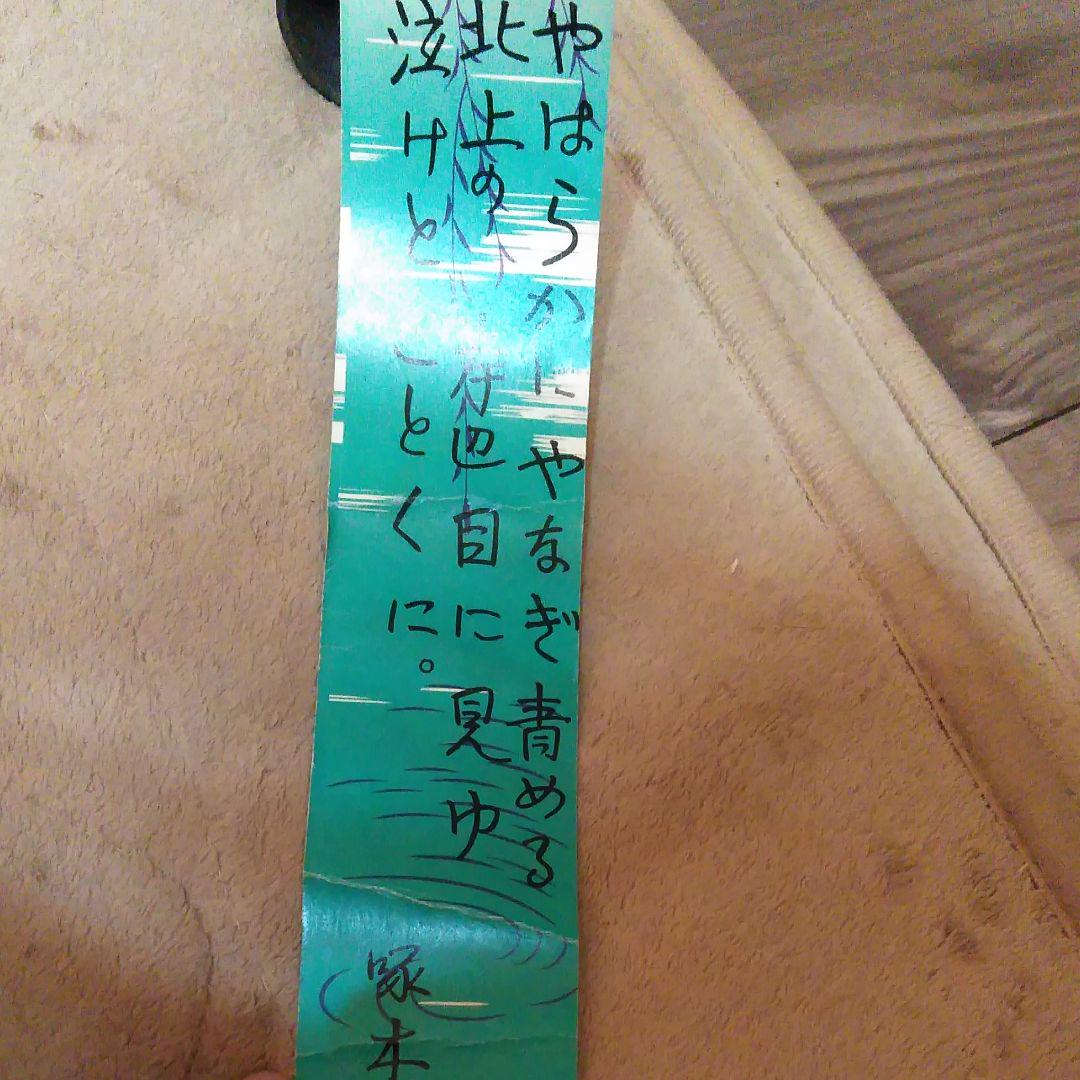 やはらかに やなぎ青める
北上の 岸辺目に見ゆ
泣けとごとくに。
塚本